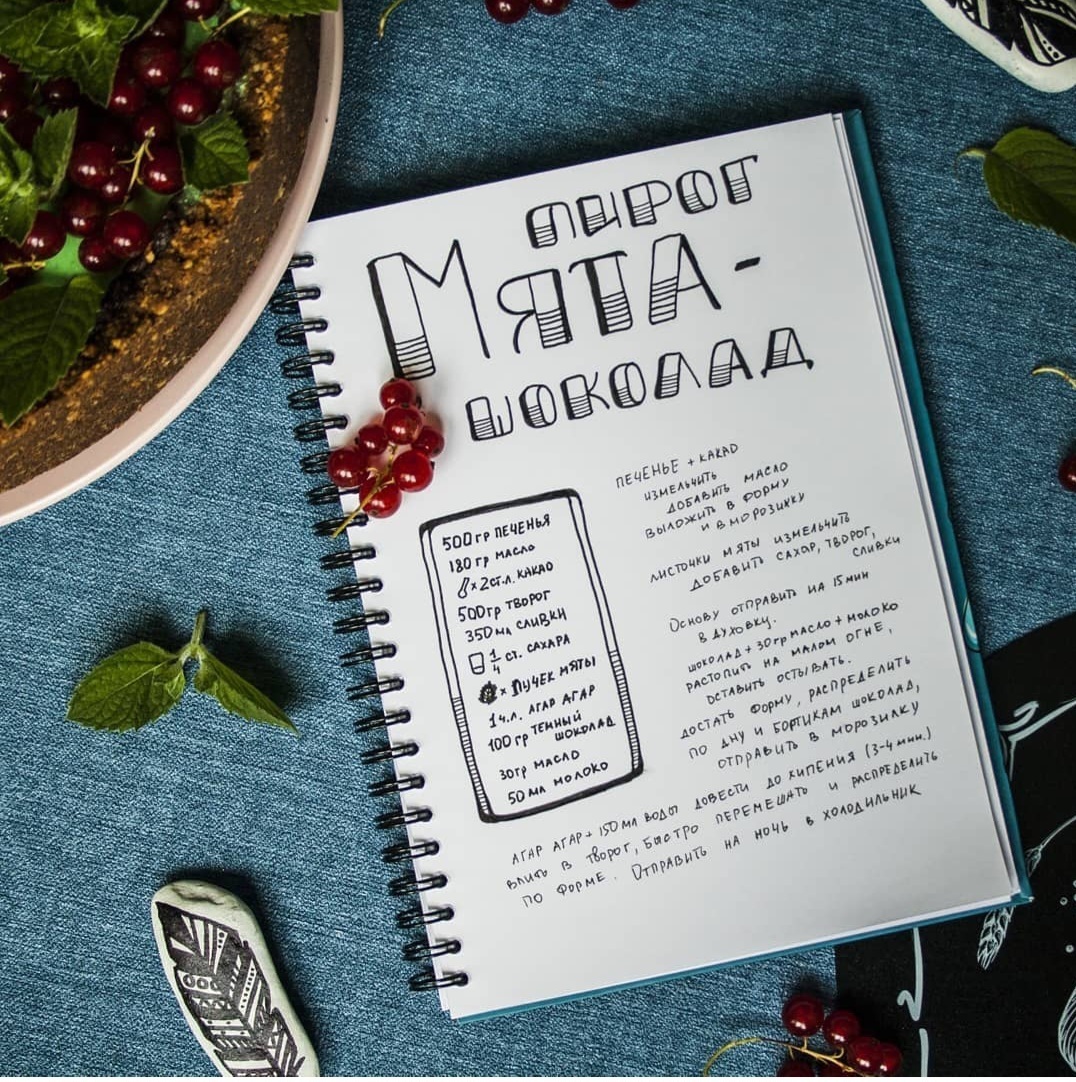 ПИРОГ
МЯТА-
ШОКОЛАД
500 гр ПЕЧЕНЬЯ
180 гр МАСЛО
× 2 СТ.Л. КАКАО
500 гр ТВОРОГ
350 мл СЛИВКИ
1/4 СТ. САХАРА
× ПУЧЕК МЯТЫ
1 Ч.Л. АГАР АГАР
100 гр ТЕМНЫЙ
ШОКОЛАД
30 гр МАСЛО
50 мл МОЛОКО
ПЕЧЕНЬЕ + КАКАО
ИЗМЕЛЬЧИТЬ
ДОБАВИТЬ МАСЛО
ВЫЛОЖИТЬ В ФОРМУ
И В МОРОЗИЛКУ
ЛИСТОЧКИ МЯТЫ ИЗМЕЛЬЧИТЬ
ДОБАВИТЬ САХАР, ТВОРОГ,
СЛИВКИ
ОСНОВУ ОТПРАВИТЬ НА 15 МИН
В ДУХОВКУ.
ШОКОЛАД + 30 гр МАСЛО + МОЛОКО
РАСТОПИТЬ НА МАЛОМ ОГНЕ,
ОСТАВИТЬ ОСТЫВАТЬ.
ДОСТАТЬ ФОРМУ, РАСПРЕДЕЛИТЬ
ПО ДНУ И БОРТИКАМ ШОКОЛАД,
ОТПРАВИТЬ В МОРОЗИЛКУ
АГАР АГАР + 150 мл ВОДЫ ДОВЕСТИ ДО КИПЕНИЯ (3-4 мин.)
ВЛИТЬ В ТВОРОГ, БЫСТРО ПЕРЕМЕШАТЬ И РАСПРЕДЕЛИТЬ
ПО ФОРМЕ. ОТПРАВИТЬ НА НОЧЬ В ХОЛОДИЛЬНИК